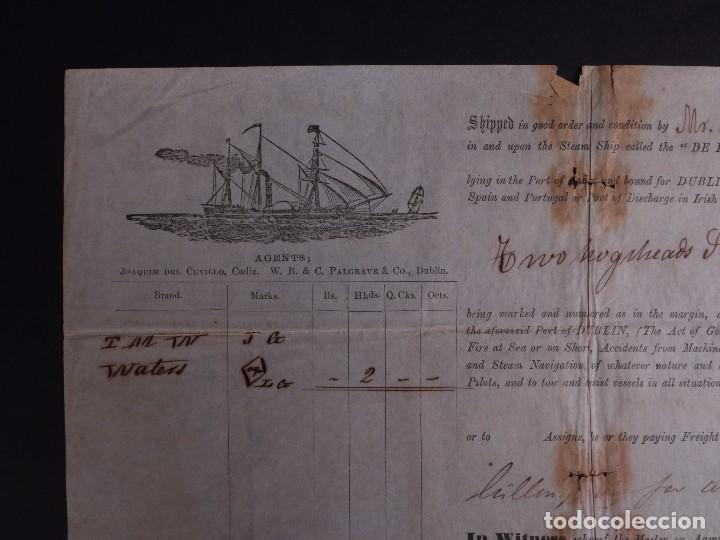 Shipped in good order and condition by Mr.
in and upon the Steam Ship called the "DE
lying in the Port of and bound for DUBLIN
Spain and Portugal or Port of Discharge in Irish
Two hogsheads
AGENTS;
JOAQUIM DEL CUVILLO, Cadiz. W. B. & C. PALGRAVE & Co., Dublin.
Brand. Marks. Bs. Hhds. Q. Cks. Octs.
I M W J G
Waters LG - 2 - -
being marked and numbered as in the margin,
the aforesaid Port of DUBLIN, (The Act of
Fire at Sea or on Short, Accidents from
and Steam Navigation, of whatever nature and
Pilots, and to tow and assist vessels in all
or to Assigns, he or they paying Freight
for
In Witness whereof the Master or Agent
todocoleccion.net